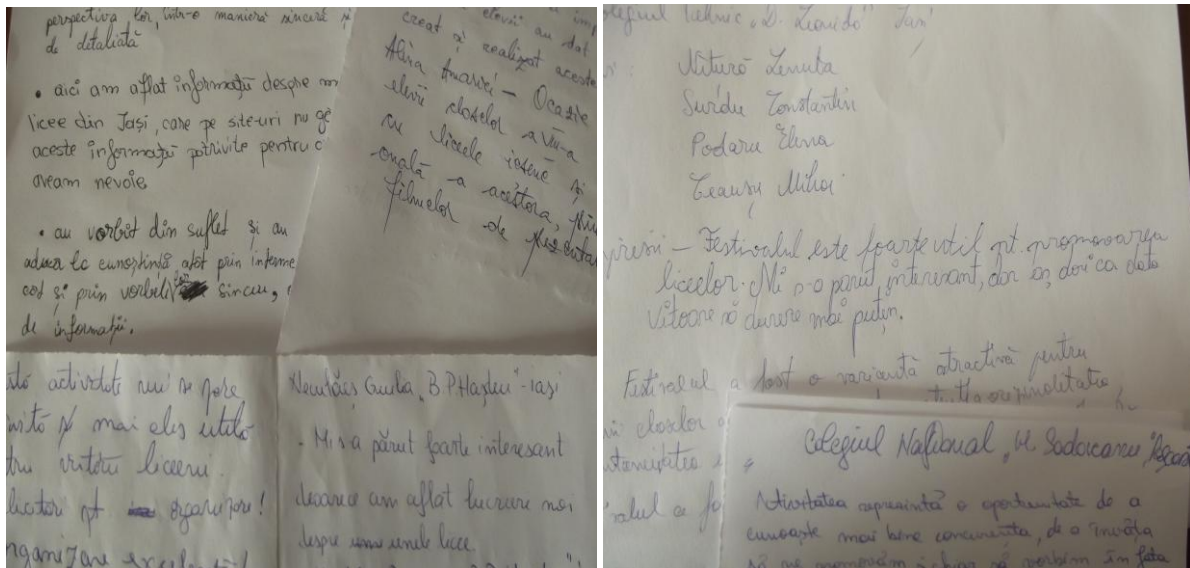 perspectiva lor, într-o manieră sinceră și
de detaliată
• aici am aflat informații despre
licee din Iași, care pe site-uri nu
aceste informații potrivite pentru
aveam nevoie
• au vorbit din suflet și au
adus la cunoștință atât prin
cât și prin vorbele lor sincere,
de informații.
elevii au dat
creat și realizat aceste
Alina Amariei - Ocazie
elevii claselor a VIII-a
cu liceele ieșene și
onală a acestora,
filmelor de prezentare
activitate mi se pare
și mai ales utilă
viitorii liceeni.
pt organizare!
organizare excelentă!
"B.P. Hașdeu" - Iași
- Mi s-a părut foarte interesant
deoarece am aflat lucruri noi
despre unele licee.
Colegiul Tehnic „D. Leonida" Iași
Nitură Lenuța
Surdu Constantin
Podaru Elena
Mihai
presii - Festivalul este foarte util pt. promovarea
liceelor. Mi s-a părut interesant, dar aș dori ca data
viitoare să dureze mai puțin.
Festivalul a fost o variantă atractivă pentru
originalitatea
claselor
Colegiul Național „M. Sadoveanu" Pașcani
Activitatea reprezintă o oportunitate de a
cunoaște mai bine concurența, de a învăța
să ne promovăm și chiar să vorbim în fața